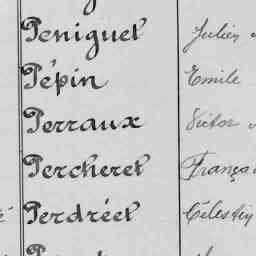 Peniguel Julien
Pépin Emile
Perraux Victor
Percheret Franço
Perdréet Célestin